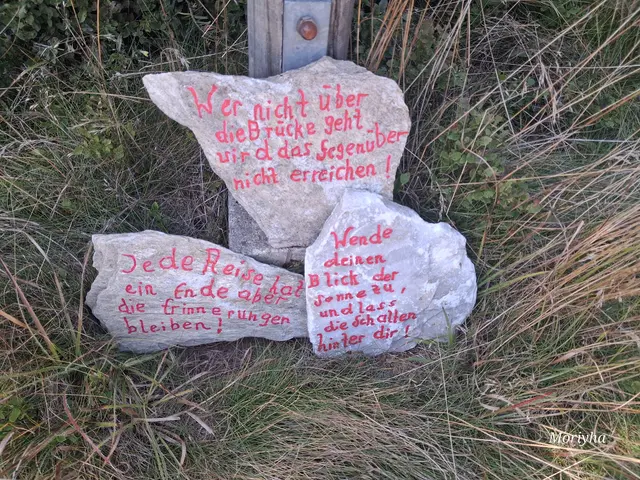 Wer nicht über
die Brücke geht
wird das Gegenüber
nicht erreichen!
Jede Reise hat
ein Ende aber
die Erinnerungen
bleiben!
Wende
deinen
Blick der
Sonne zu,
und lass
die Schatten
hinter dir!
Moriyha